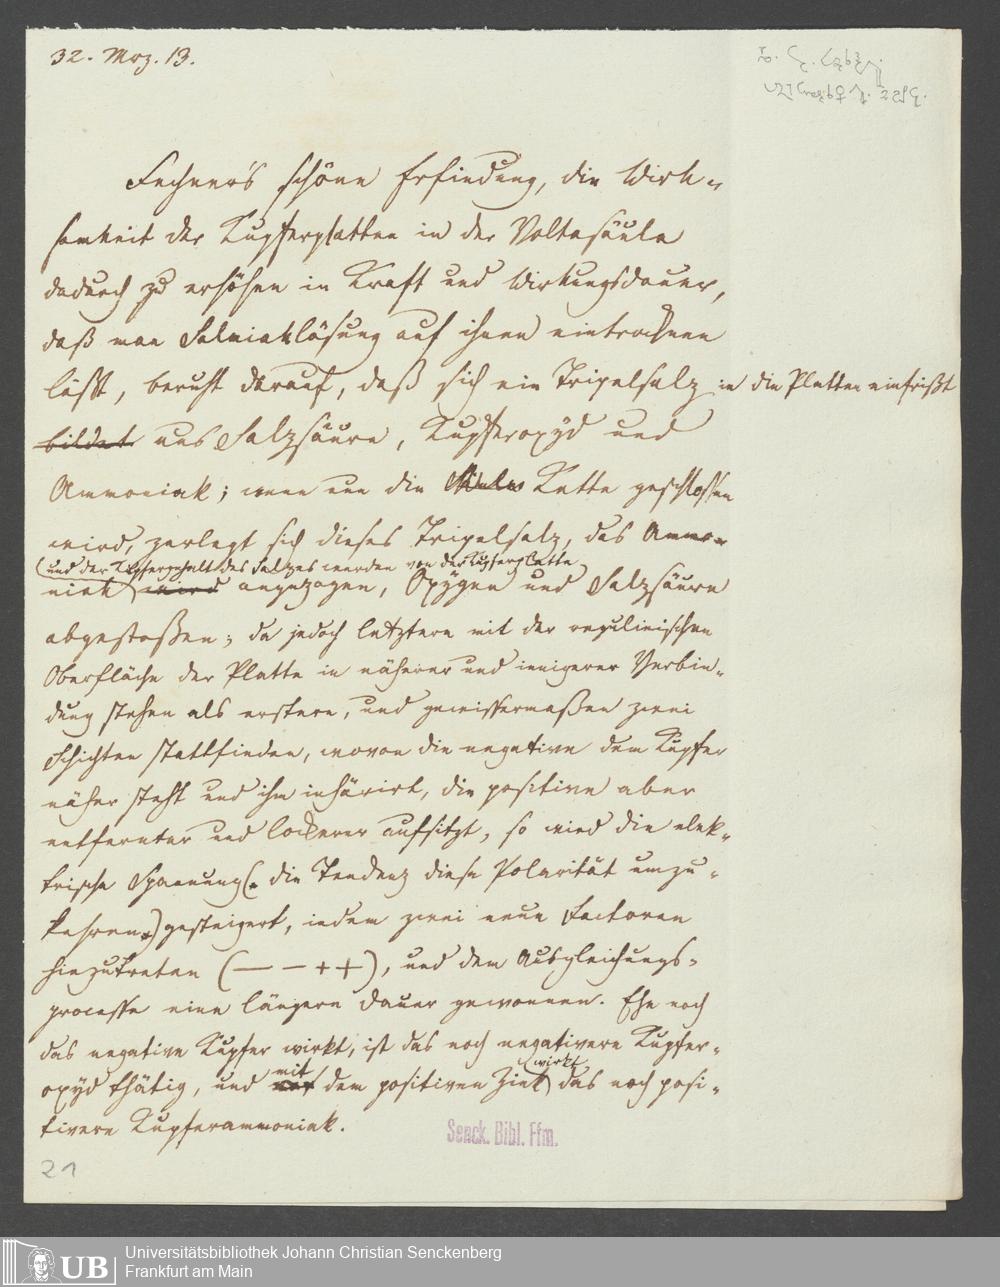 32. Mrz. 13.
Fechner's schöne Erfindung, die Wirk-
samkeit der Kupferplatten in der Voltasäule
dadurch zu erhöhen in Kraft und Wirkungsdauer,
daß man Salmiaklösung auf ihnen eintrocknen
läßt, beruht darauf, daß sich ein Tripelsalz in die Platten einfrißt
bildet aus Salzsäure, Kupferoxyd und
Ammoniak; wenn nun die Kette geschlossen
wird, zerlegt sich dieses Tripelsalz, das Ammo-
und der Kupfergehalt des Salzes werden von der Kupferplatte
niak wird angezogen, Oxygen und Salzsäure
abgestoßen; da jedoch letztere mit der regulinischen
Oberfläche der Platte in näherer und innigerer Verbin-
dung stehen als erstere, und gewissermaßen zwei
Schichten stattfinden, wovon die negative dem Kupfer
näher steht und ihm inhärirt, die positive aber
entfernter und lockerer aufsitzt, so wird die elek-
trische Spannung (: die Tendenz diese Polarität umzu-
kehren :) gesteigert, indem zwei neue Factoren
hinzutreten (— – + +), und dem Ausgleichungs-
processe eine längere Dauer gewonnen. Ehe noch
das negative Kupfer wirkt, ist das noch negativere Kupfer-
oxyd thätig, und mit dem positiven Zink wirkt das noch posi-
tivere Kupferammoniak.
21
Senck. Bibl. Ffm.
UB
Universitätsbibliothek Johann Christian Senckenberg
Frankfurt am Main